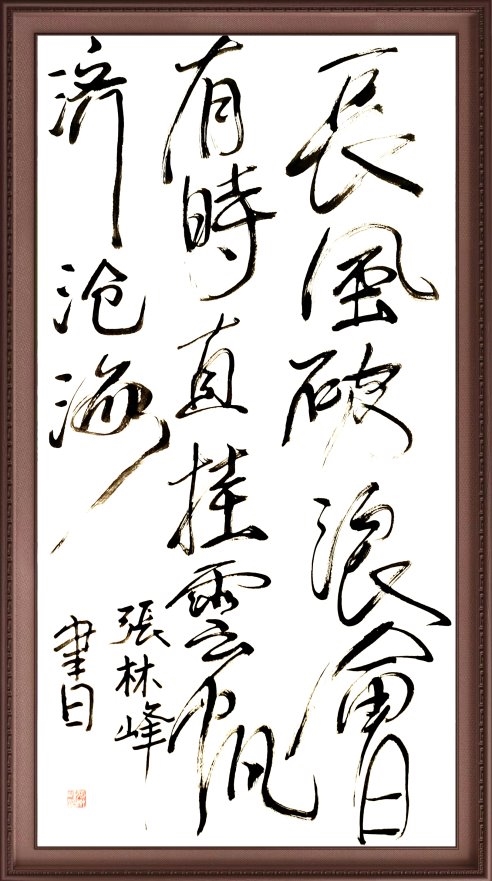 長風破浪會
有時直挂雲帆
濟滄海
張林峰
書